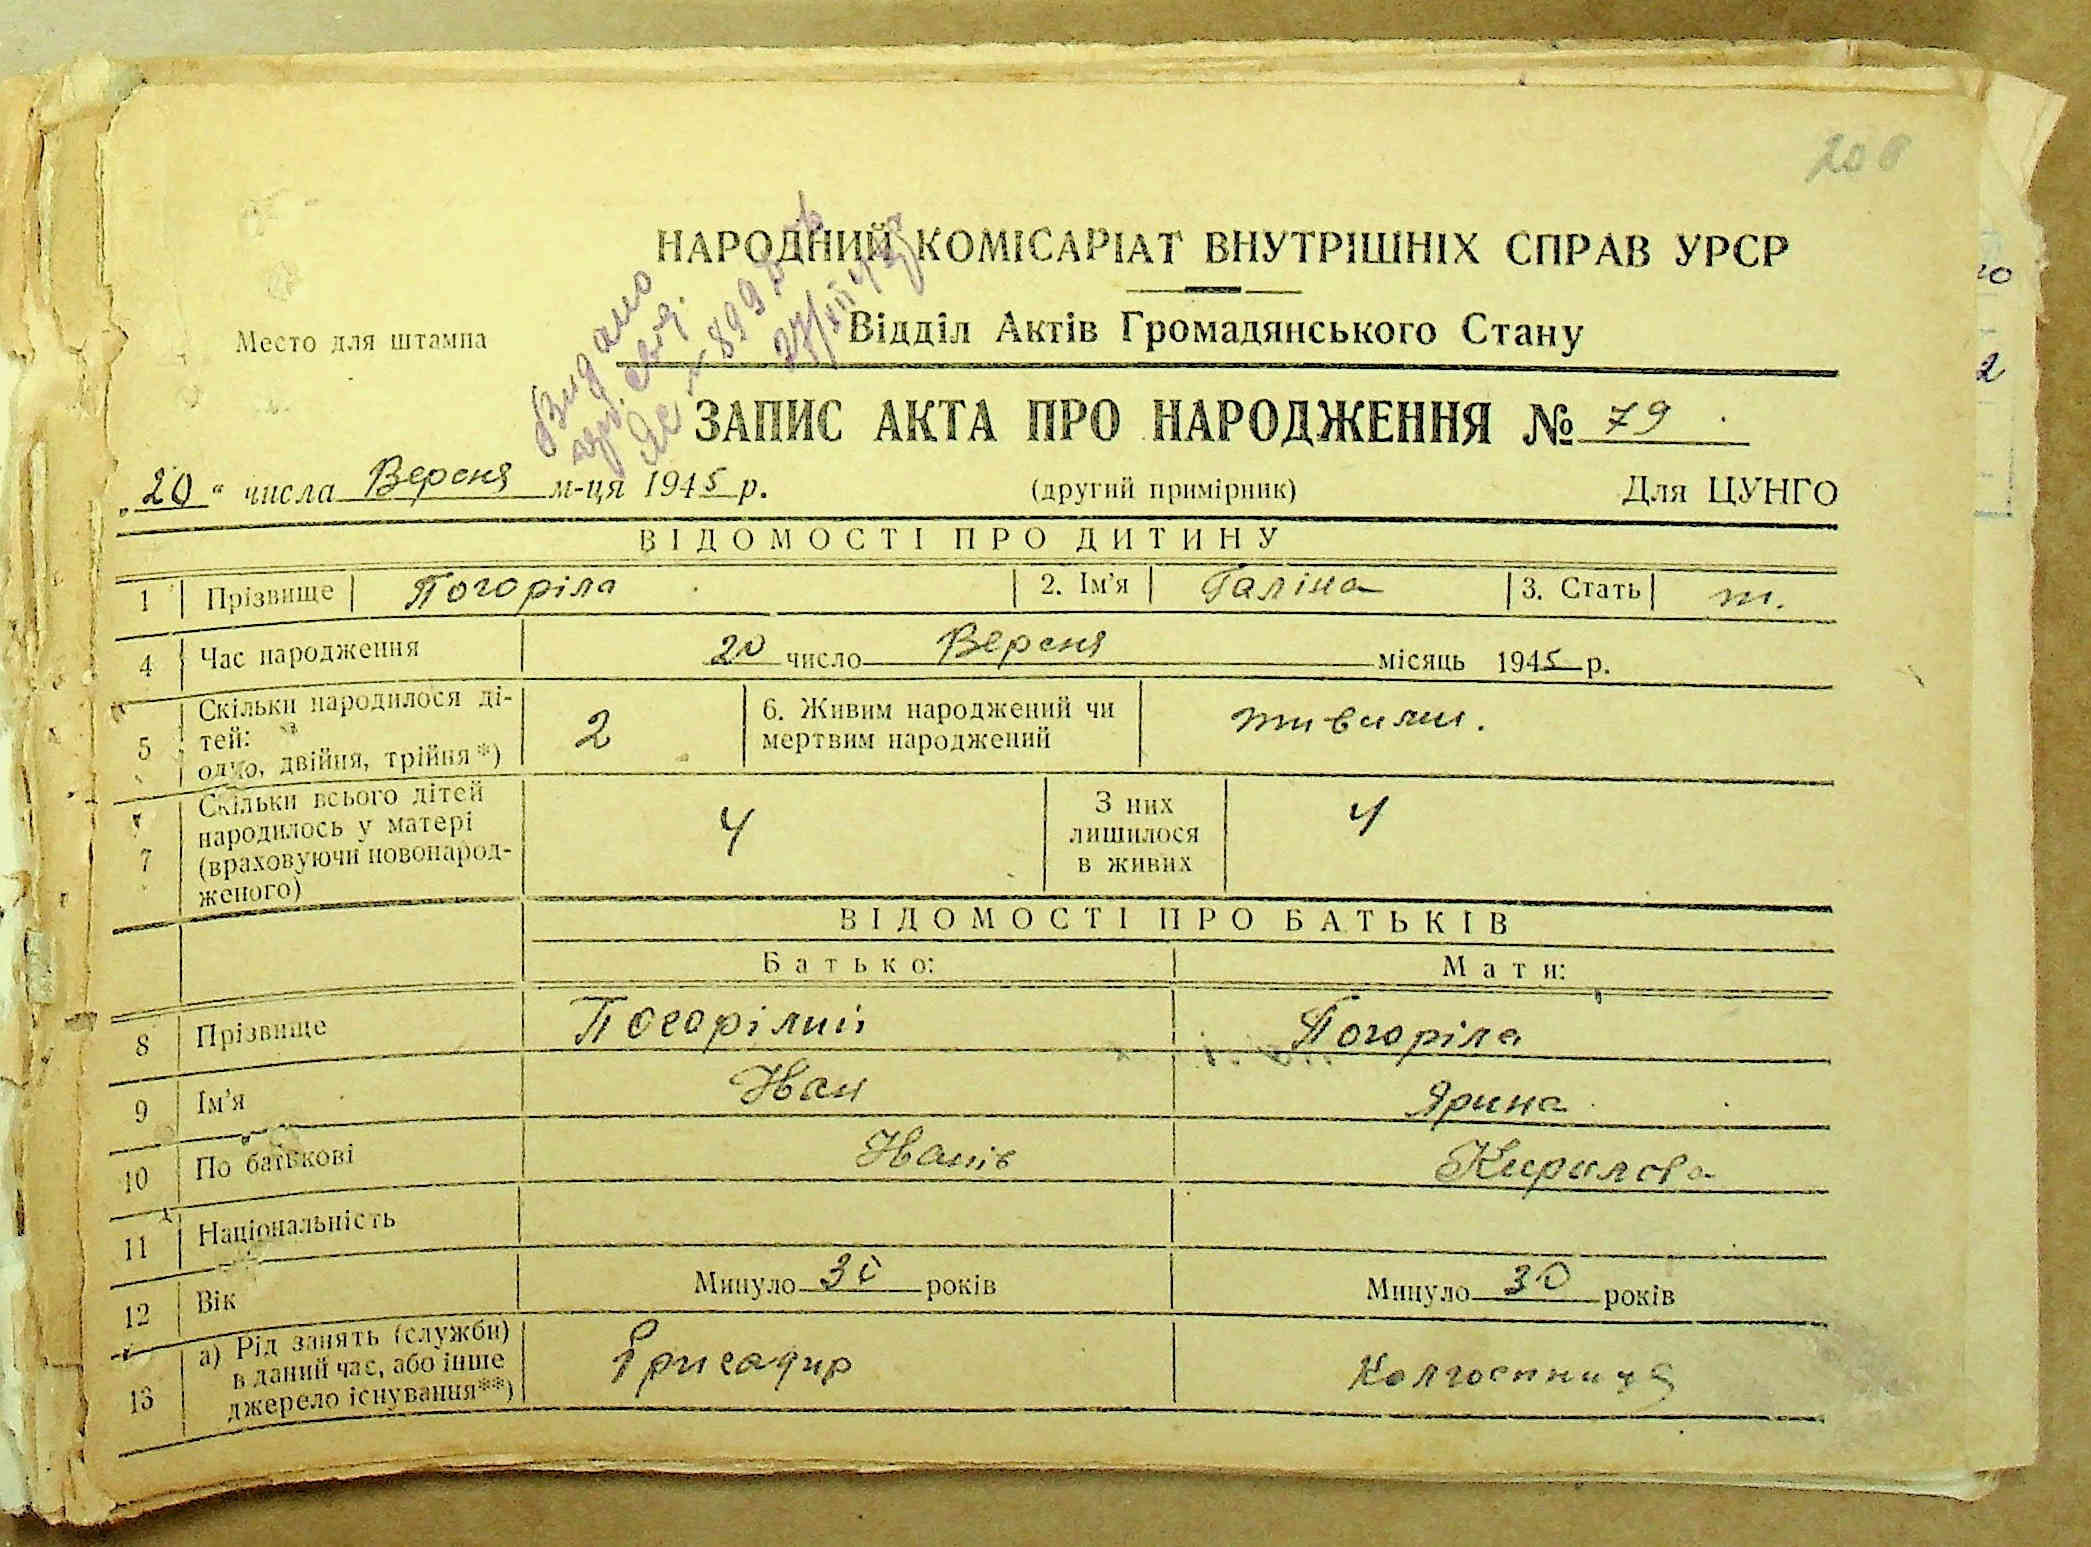 208
НАРОДНИЙ КОМІСАРІАТ ВНУТРІШНІХ СПРАВ УРСР
Место для штампа
Відділ Актів Громадянського Стану
Видано
свід.
ЗАПИС АКТА ПРО НАРОДЖЕННЯ № 79
„20“ числа Вересня м-ця 1945 р. (другий примірник) Для ЦУНГО
ВІДОМОСТІ ПРО ДИТИНУ
1 Прізвище Погоріла 2. Ім'я Галіна 3. Стать ж.
4 Час народження 20 число Вересня місяць 1945 р.
5 Скільки народилося ді-
тей:
одно, двійня, трійня*) 2 6. Живим народжений чи
мертвим народжений живими.
7 Скільки всього дітей
народилось у матері
(враховуючи новонарод-
женого) 4 З них
лишилося
в живих 4
ВІДОМОСТІ ПРО БАТЬКІВ
Батько: Мати:
8 Прізвище Погорілий Погоріла
9 Ім'я Іван Ярина
10 По батькові Іванів Кирилова
11 Національність
12 Вік Минуло 30 років Минуло 30 років
13 а) Рід занять (служби)
в даний час, або інше
джерело існування**) Бригадир Колгоспниця